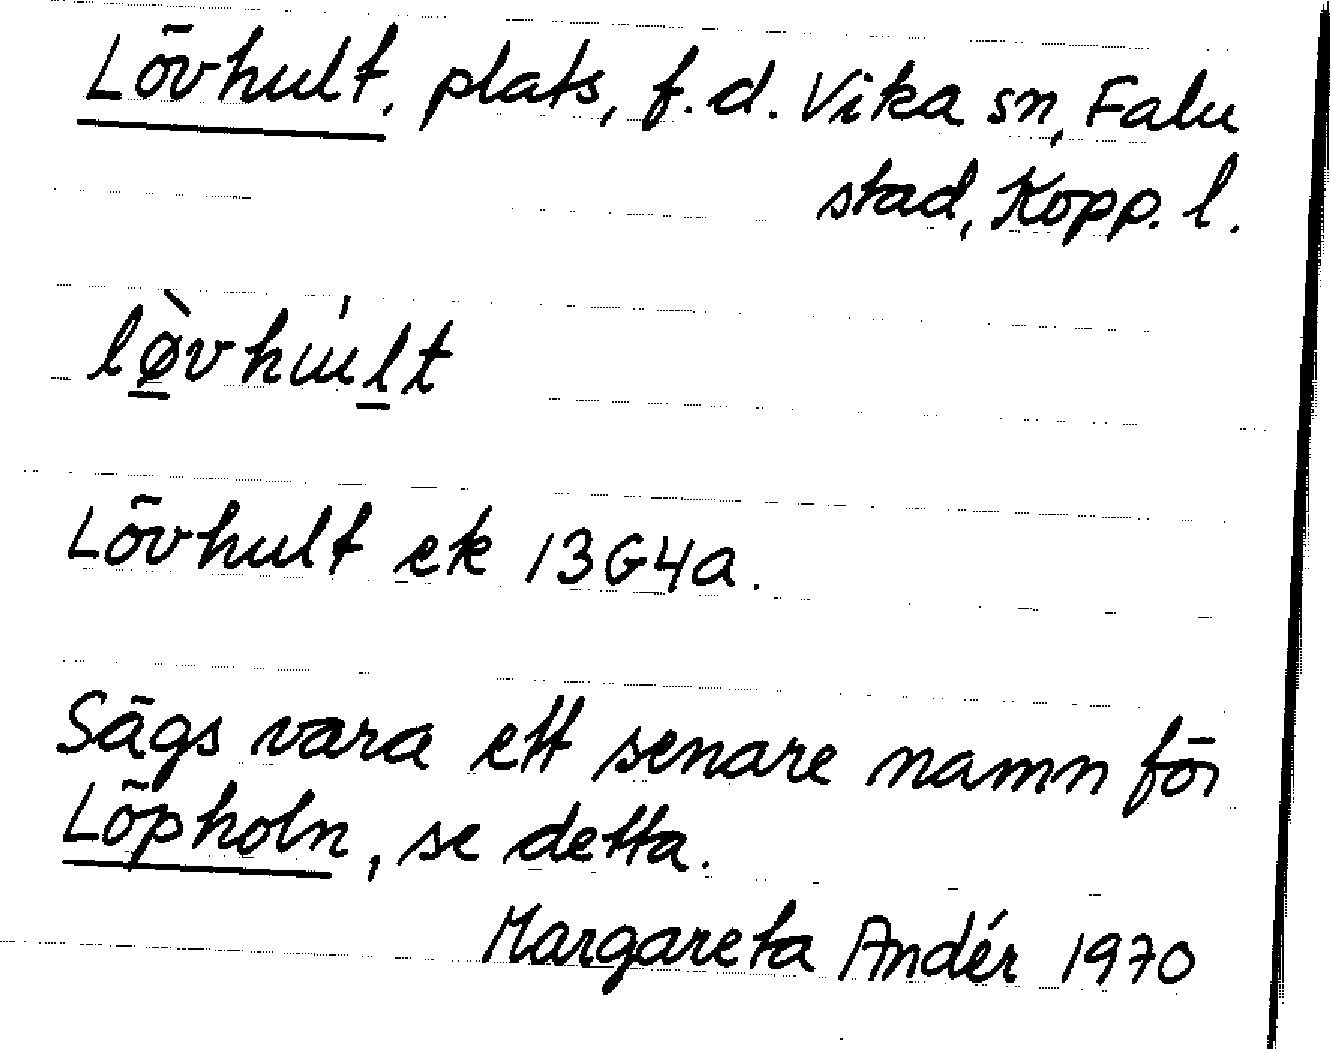 Lövhult, plats, f.d. Vika sn, Falu
stad, Kopp. l.
lø̠̀vhúl̠t
Lövhult ek 13G4a.
Sägs vara ett senare namn för
Löpholn, se detta.
Margareta Andér 1970